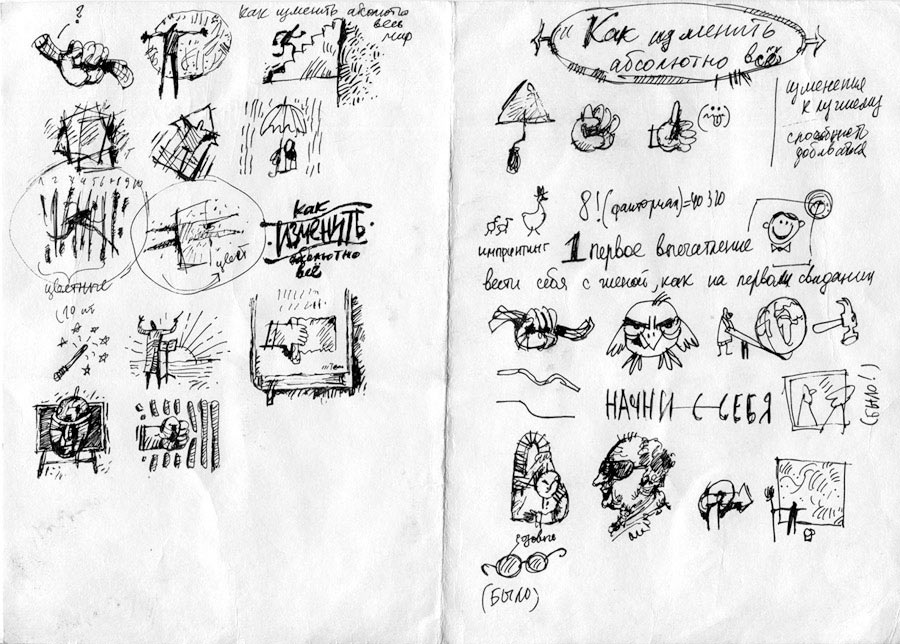 ?
Как изменить абсолютно
весь
мир
1 2 3 4 5 6 7 8 9 10
цвет
как
изменить
абсолютно
всё
цветные
(10 шт
Как изменить
абсолютно всё
изменения
к лучшему
способность
добиваться
8! (факториал)=40320
импринтинг
1 первое впечатление
вести себя с женой, как на первом свидании
НАЧНИ С СЕБЯ
(БЫЛО!)
(БЫЛО)